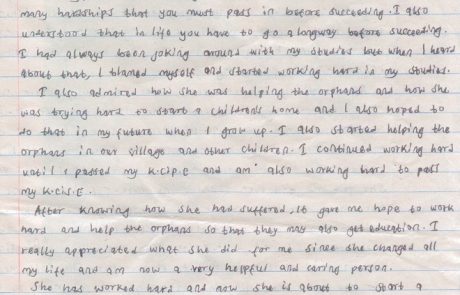 many hardships that you must pass in before succeeding. I also
understood that in life you have to go a longway before succeeding.
I had always been joking around with my studies but when I heard
about that, I blamed myself and started working hard in my studies.
I also admired how she was helping the orphans and how she
was trying hard to start a children's home and I also hoped to
do that in my future when I grow up. I also started helping the
orphans in our village and other children. I continued working hard
until I passed my K.C.I.P.E and am also working hard to pass
my K.C.I.S.E.
After knowing how she had suffered, it gave me hope to work
hard and help the orphans so that they may also get education. I
really appreciated what she did for me since she changed all
my life and am now a very helpful and caring person.
She has worked hard and now she is about to start a